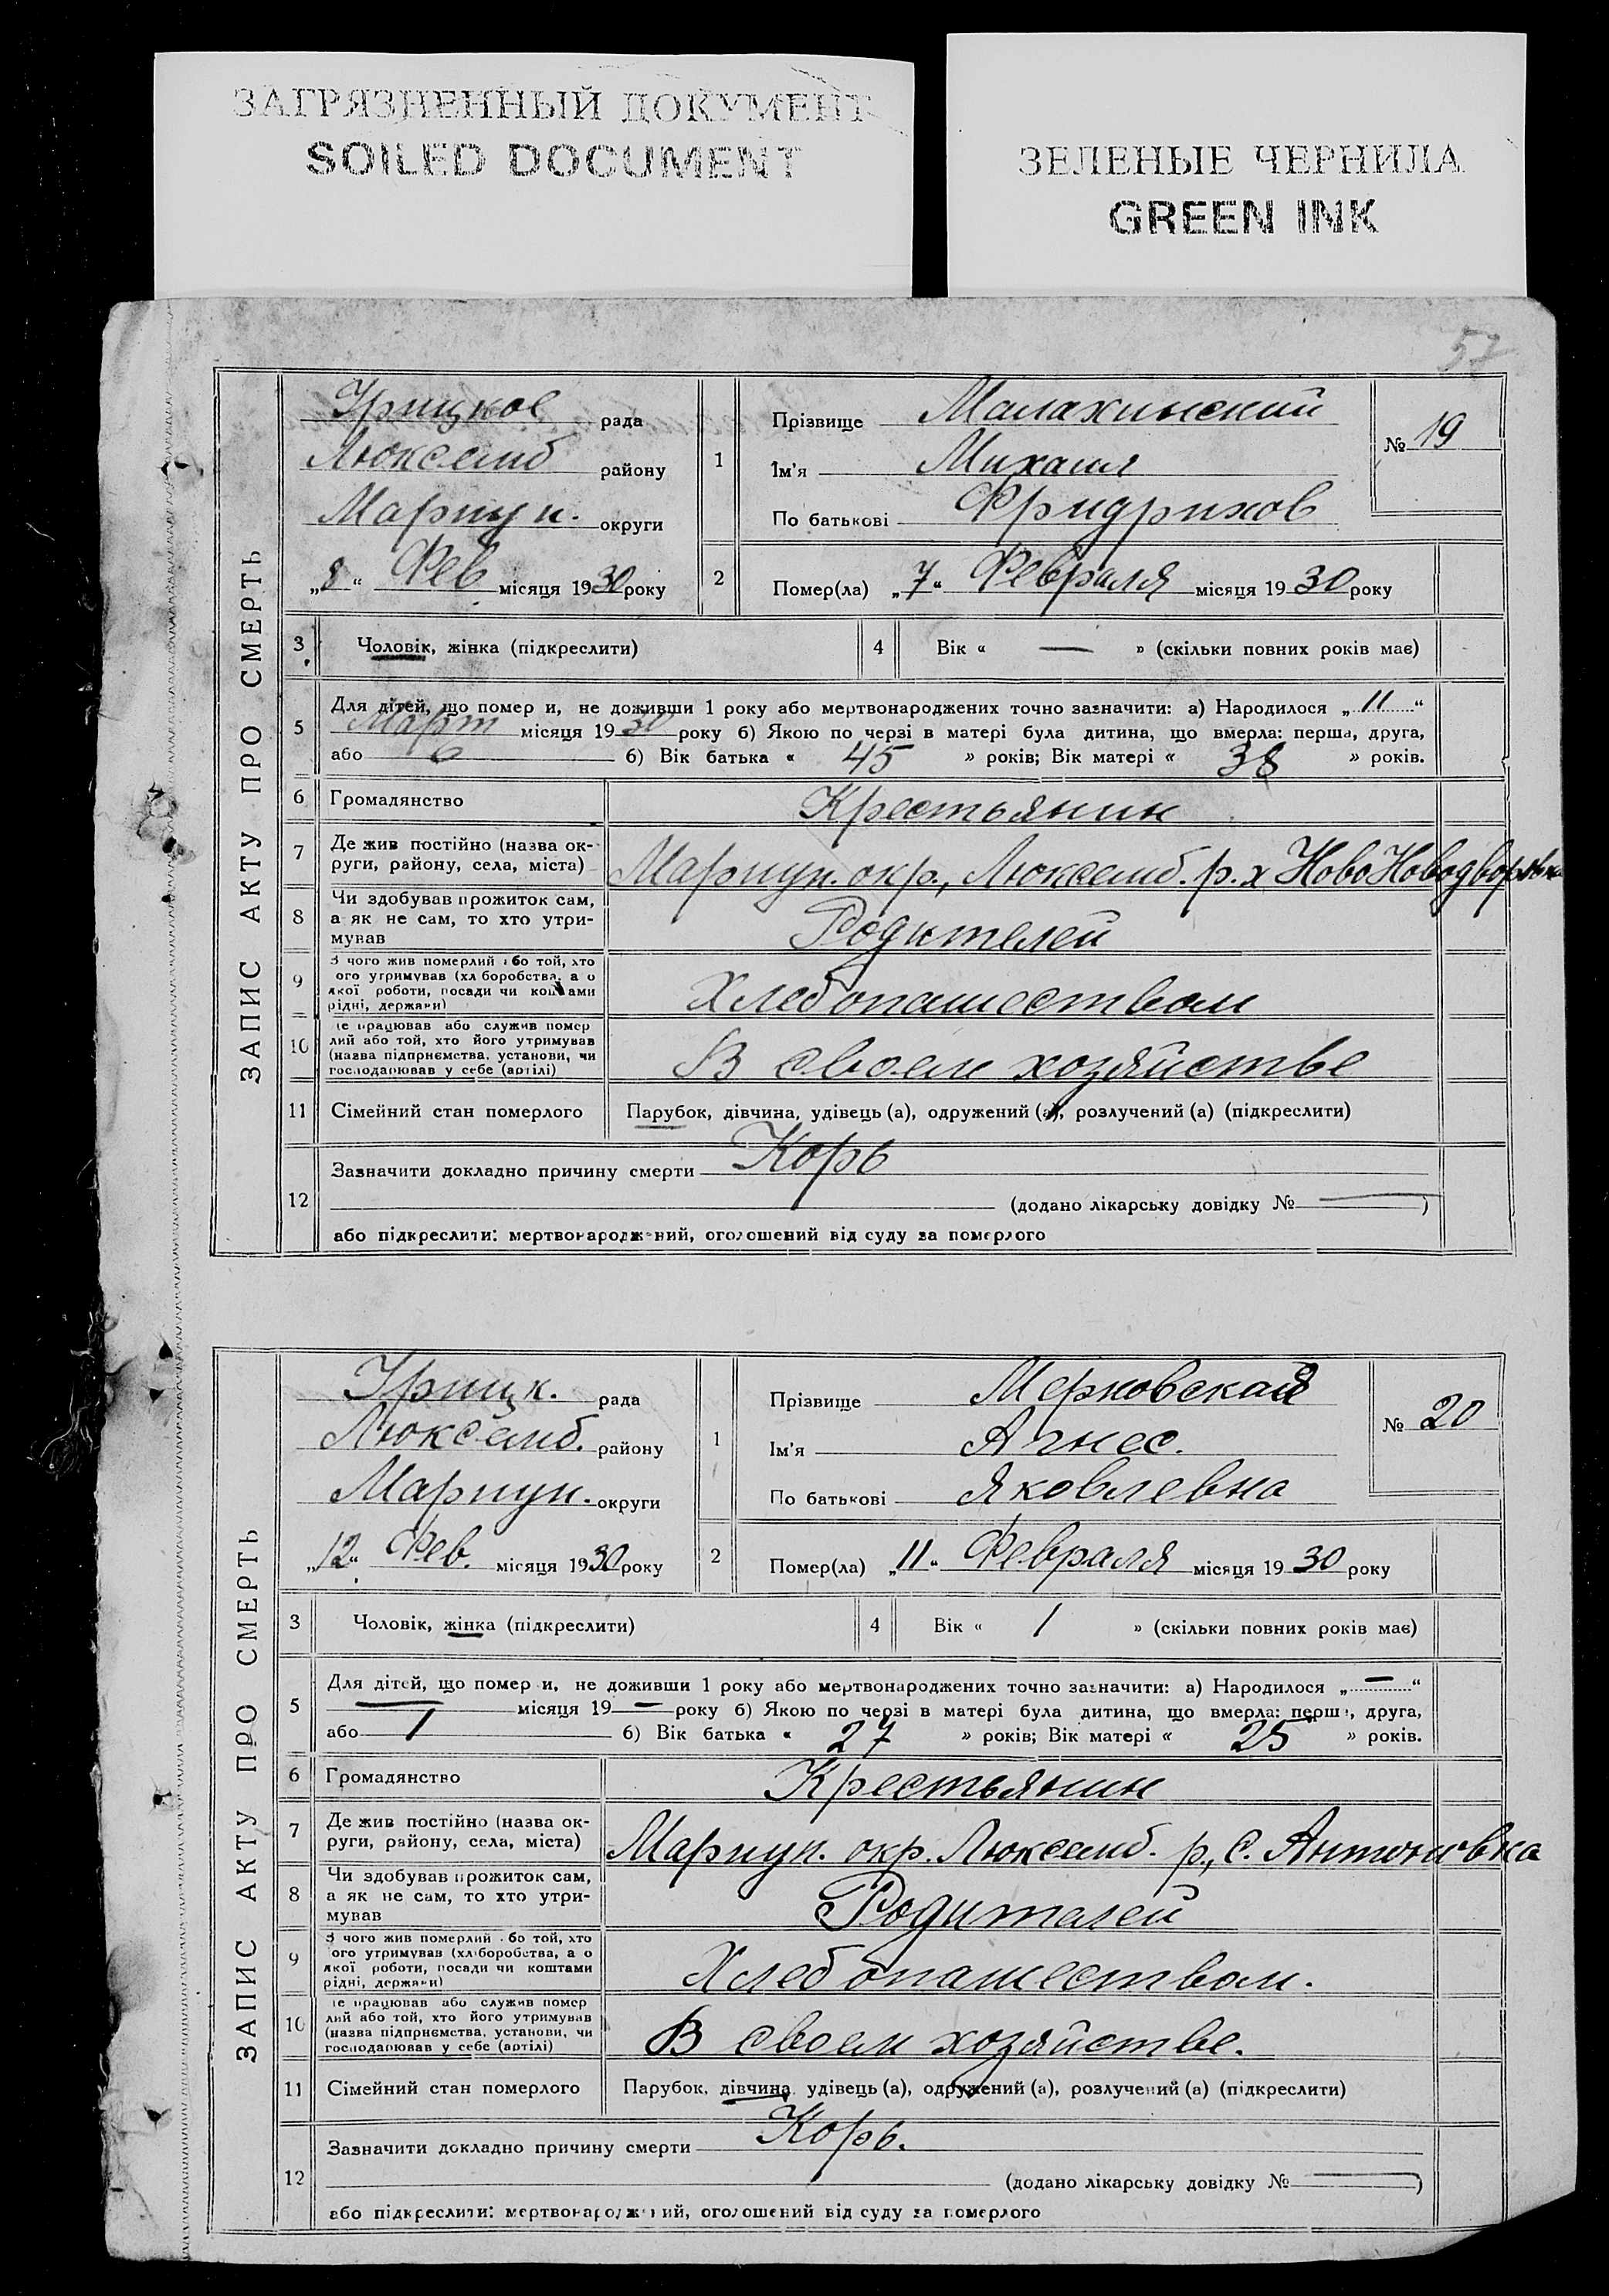 ЗАГРЯЗНЕННЫЙ ДОКУМЕНТ
SOILED DOCUMENT
ЗЕЛЕНЫЕ ЧЕРНИЛА
GREEN INK
57
ЗАПИС АКТУ ПРО СМЕРТЬ
Урицкое рада
Люксемб району
Мариуп. округи
„8“ Фев місяця 1930 року
1
Прізвище Малахинский
Ім'я Михаил
По батькові Фридрихов
№ 19
2 Помер(ла) „7“ Февраля місяця 1930 року
3 Чоловік, жінка (підкреслити)
4 Вік « — » (скільки повних років має)
5 Для дітей, що помер и, не доживши 1 року або мертвонароджених точно зазначити: а) Народилося „11“
Март місяця 1930 року б) Якою по черзі в матері була дитина, що вмерла: перша, друга,
або 6 б) Вік батька « 45 » років; Вік матері « 38 » років.
6 Громадянство Крестьянин
7 Де жив постійно (назва ок-
руги, району, села, міста) Мариуп. окр., Люксемб. р. х Ново
8 Чи здобував прожиток сам,
а як не сам, то хто утри-
мував Родителей
9 З чого жив померлий або той, хто
ого утримував (хл боробства, а о
якої роботи, посади чи коштами
рідні, держави) Хлебопашеством
10 е працював або служив помер
лий або той, хто його утримував
(назва підприємства, установи, чи
господарював у себе (артілі) В своем хозяйстве
11 Сімейний стан померлого Парубок, дівчина, удівець (а), одружений (а), розлучений (а) (підкреслити)
12 Зазначити докладно причину смерти Корь
(додано лікарську довідку № —)
або підкреслити: мертвонароджений, оголошений від суду за померлого
ЗАПИС АКТУ ПРО СМЕРТЬ
Урицк. рада
Люксемб. району
Мариуп. округи
„12“ Фев. місяця 1930 року
1
Прізвище Мерновская
Ім'я Агнес.
По батькові Яковлевна
№ 20
2 Помер(ла) „11“ Февраля місяця 1930 року
3 Чоловік, жінка (підкреслити)
4 Вік « 1 » (скільки повних років має)
5 Для дітей, що помер и, не доживши 1 року або мертвонароджених точно зазначити: а) Народилося „—“
— місяця 19 — року б) Якою по черзі в матері була дитина, що вмерла: перша, друга,
або 1 б) Вік батька « 27 » років; Вік матері « 25 » років.
6 Громадянство Крестьянин
7 Де жив постійно (назва ок-
руги, району, села, міста) Мариуп. окр. Люксемб. р., с. Антоновка
8 Чи здобував прожиток сам,
а як не сам, то хто утри-
мував Родителей
9 З чого жив померлий або той, хто
ого утримував (хліборобства, а о
якої роботи, посади чи коштами
рідні, держави) Хлебопашеством.
10 е працював або служив помер
лий або той, хто його утримував
(назва підприємства, установи, чи
господарював у себе (артілі) В своем хозяйстве.
11 Сімейний стан померлого Парубок, дівчина, удівець (а), одружений (а), розлучений (а) (підкреслити)
12 Зазначити докладно причину смерти Корь.
(додано лікарську довідку № —)
або підкреслити: мертвонароджений, оголошений від суду за померлого